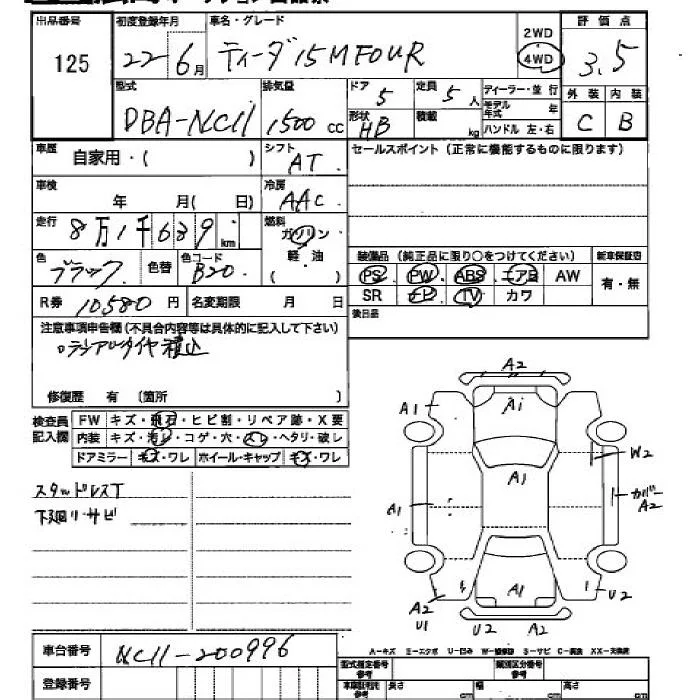 出品番号 初度登録年月 車名・グレード 評価点
125 22年6月 ティーダ 15M FOUR 2WD 4WD 3.5
型式 排気量 ドア 定員 ディーラー・並行 外装 内装
DBA-NC11 1500cc 5 5人 モデル年式 年 C B
形状 HB 積載 kg ハンドル 左・右
車歴 自家用・( ) シフト AT セールスポイント(正常に機能するものに限ります)
車検 年 月( 日) 冷房 AAC
走行 8万1千639km 燃料 ガソリン
軽油
( )
色 ブラック 色替 色コード B20
装備品(純正品に限り○をつけてください) 新車保証書
PS PW ABS エアB AW 有・無
SR ナビ TV カワ
R券 10580円 名変期限 月 日
後日品
注意事項申告欄(不具合内容等は具体的に記入して下さい)
ラジアルタイヤ積込
修復歴 有 (箇所 )
検査員記入欄 FW キズ・飛石・ヒビ割・リペア跡・X要
内装 キズ・汚レ・コゲ・穴・スレ・ヘタリ・破レ
ドアミラー キズ・ワレ ホイール・キャップ キズ・ワレ
スタッドレスT
下廻り・サビ
A2
A1 A1
W2
A1
カバー
A1 A2
A1
A2 U2
U1 U2 A2
A-キズ E-エクボ U-凹み W-補修跡 S-サビ C-腐食 XX-交換済
車台番号 NC11-200996
登録番号
型式指定番号 参考 類別区分番号 参考
長さ cm 幅 cm 高さ cm